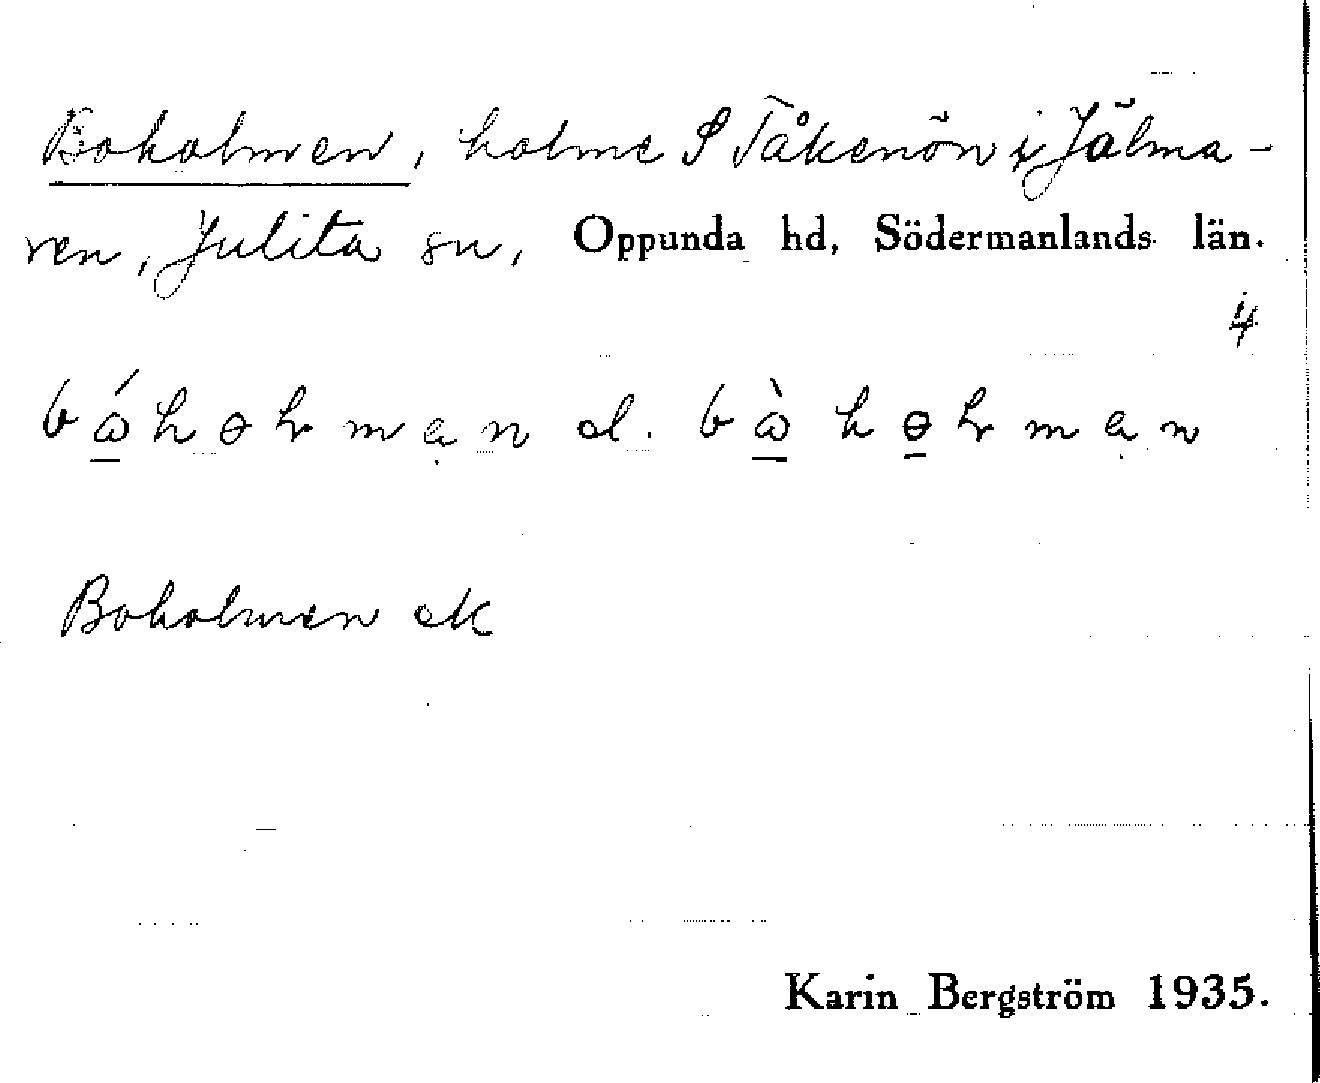 Boholmen, holme S Tåkenön i Jälma-
ren, Julita sn, Oppunda hd, Södermanlands län.
4
Boholmen ek
Karin Bergström 1935.